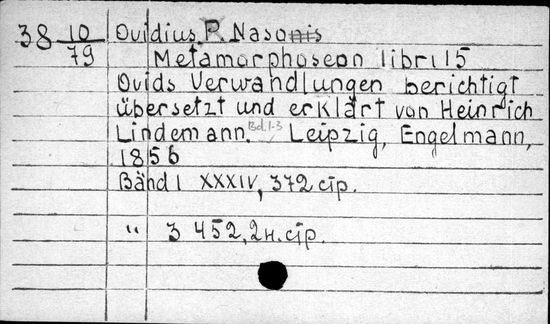 38 10/79 Ovidius, P. Nasonis
Metamorphoseon libri 15
Ovids Verwandlungen berichtigt
übersetzt und erklärt von Heinrich
Lindemann. Bd. 1-3 Leipzig, Engelmann,
1856
Bänd 1 XXXIV, 372 стр.
" 3 452, 2 н. стр.